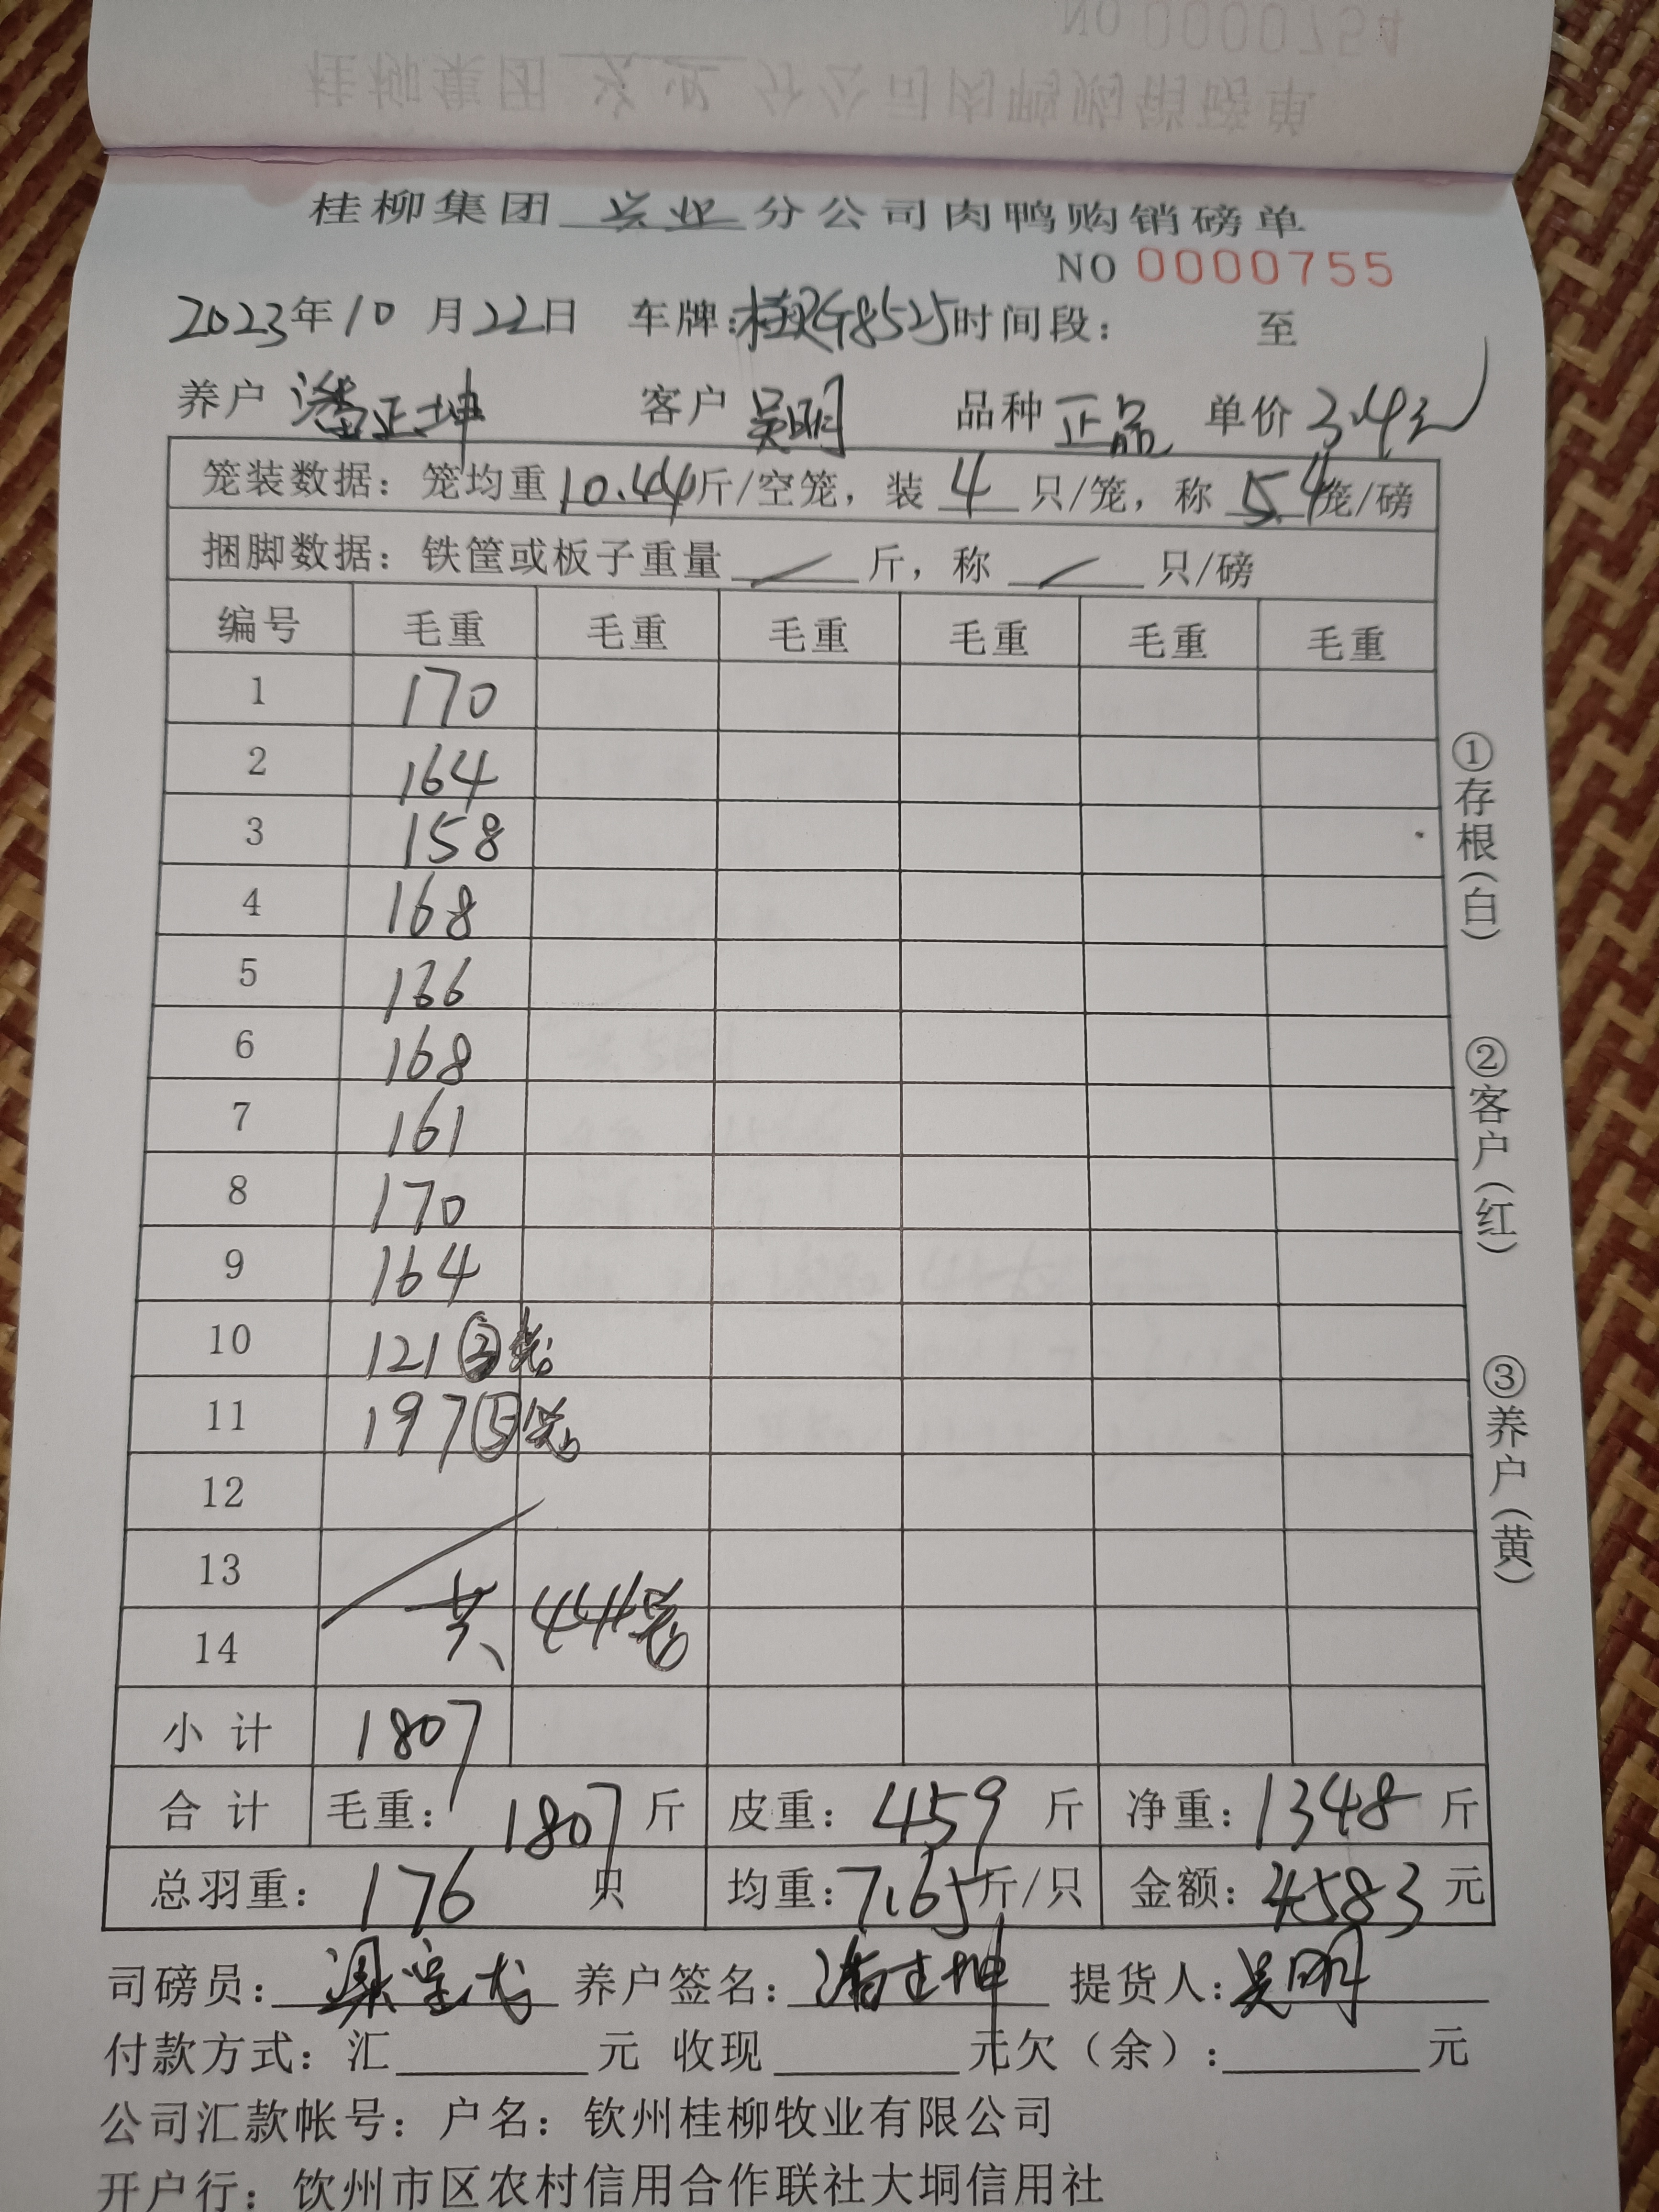 NO 0000754
桂柳集团 兴业 分公司肉鸭购销磅单
桂柳集团 兴业 分公司肉鸭购销磅单
NO 0000755
2023年10月22日 车牌:桂 G8525 时间段: 至
养户 潘正坤 客户 吴明 品种 正品 单价 3.4元
笼装数据: 笼均重 10.44 斤/空笼, 装 4 只/笼, 称 4 笼/磅
捆脚数据: 铁筐或板子重量 / 斤, 称 / 只/磅
编号 毛重 毛重 毛重 毛重 毛重 毛重
1 170
2 164
3 158
4 168
5 166
6 168
7 161
8 170
9 164
10 121 ③笼
11 197 ⑤笼
12
13
14 共 44笼
小计 1807
合计 毛重: 1807 斤 皮重: 459 斤 净重: 1348 斤
总羽重: 176 只 均重: 7.65 斤/只 金额: 4583 元
司磅员: 梁 养户签名: 潘正坤 提货人: 吴明
付款方式: 汇 元 收现 元欠(余): 元
公司汇款帐号: 户名: 钦州桂柳牧业有限公司
开户行: 饮州市区农村信用合作联社大垌信用社
①存根(白)
②客户(红)
③养户(黄)